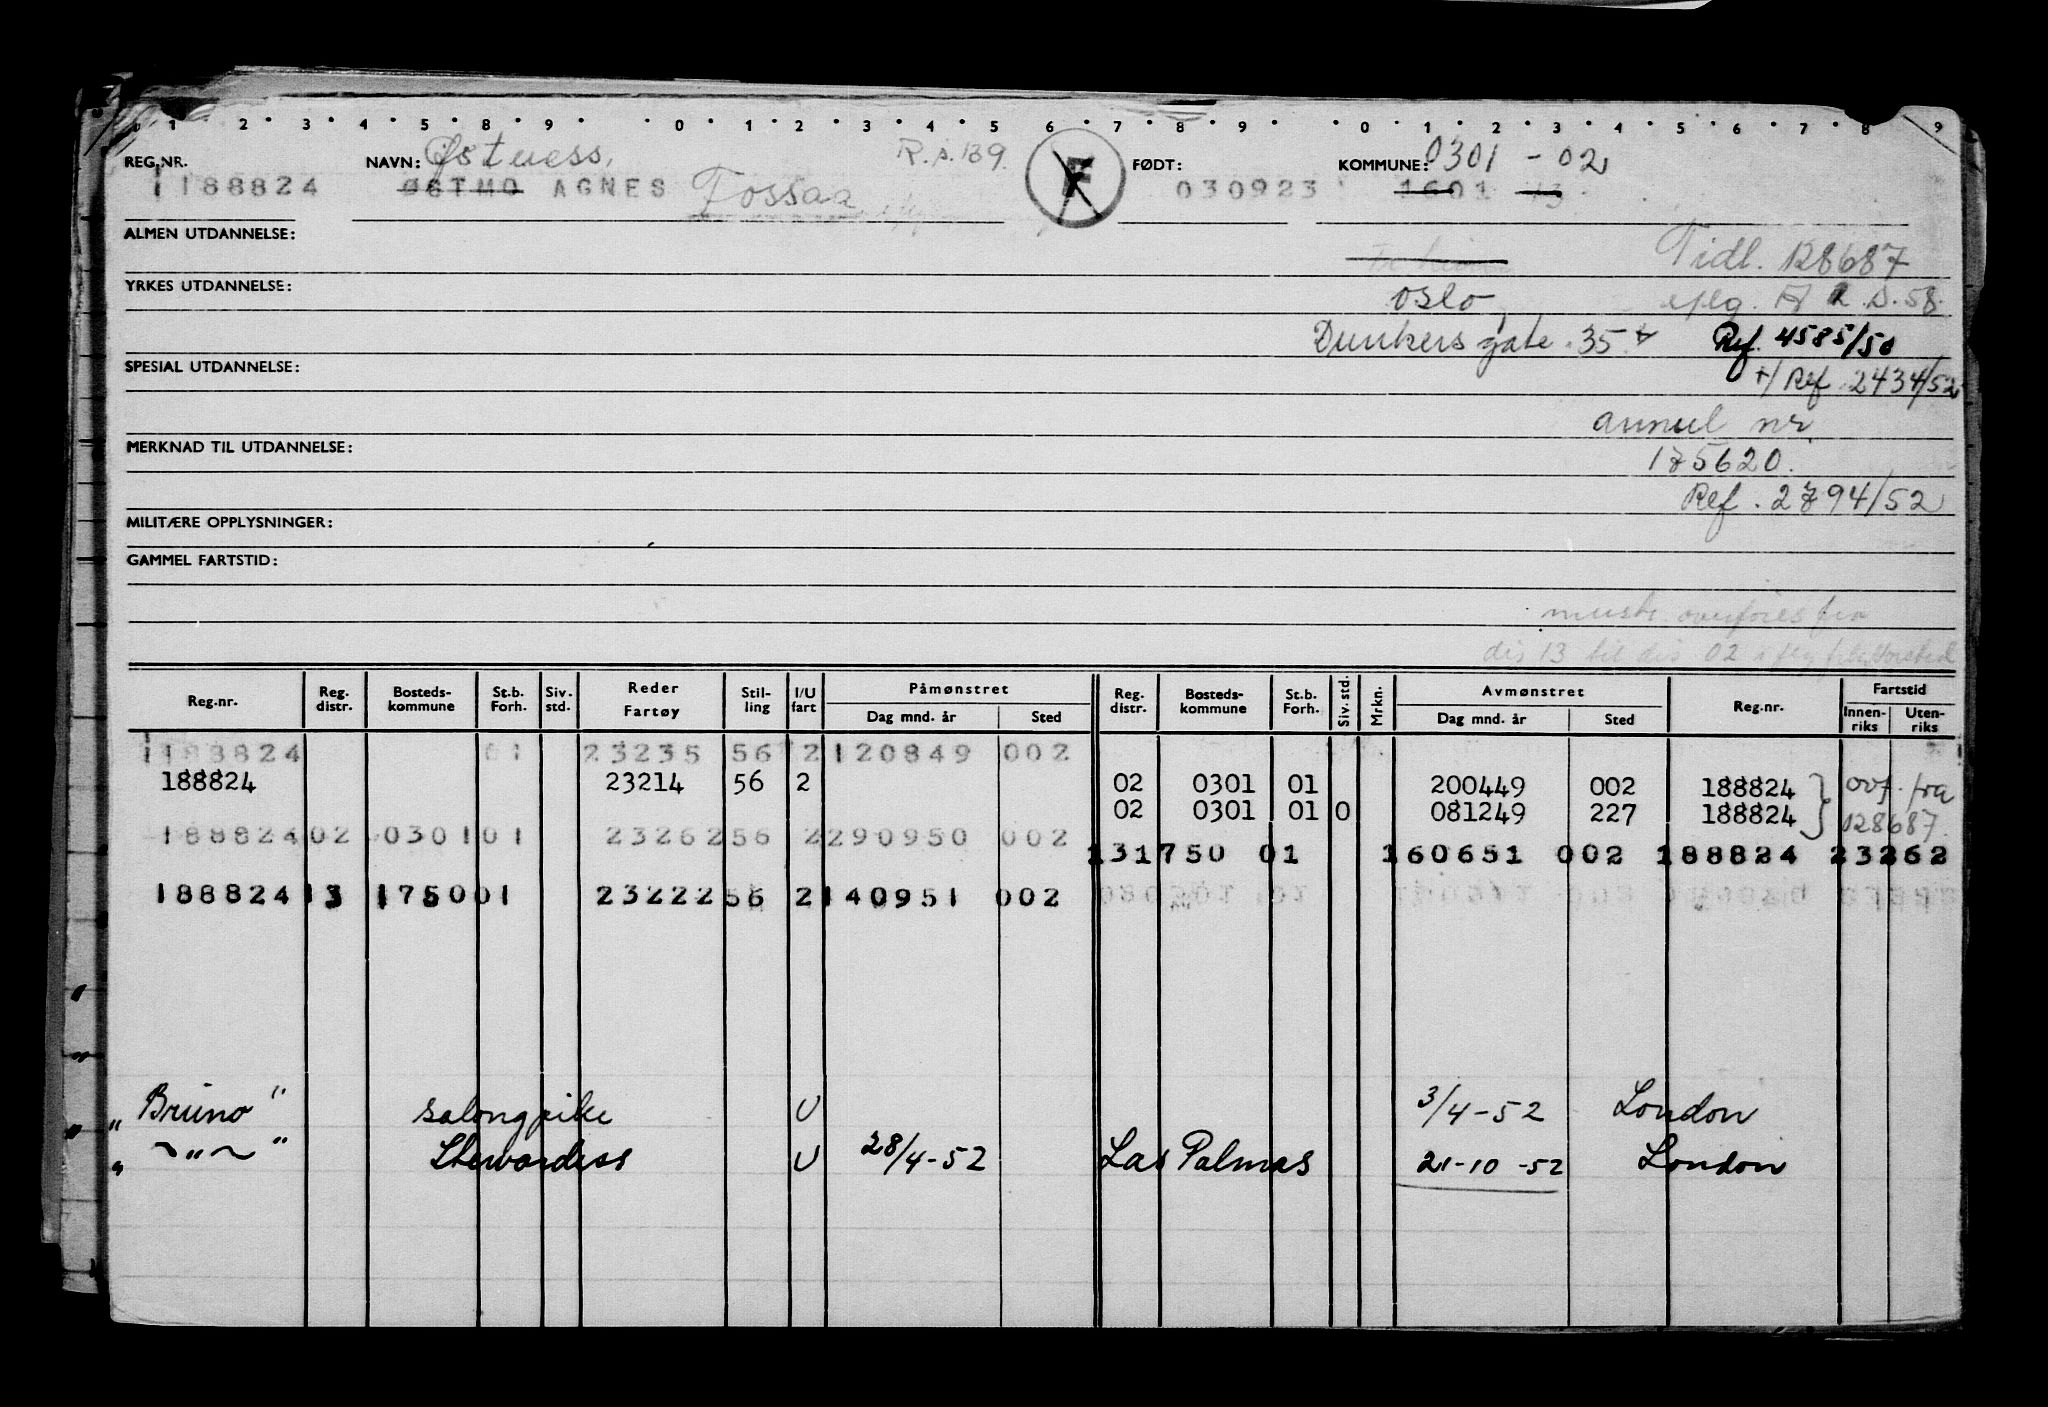 1 2 3 4 5 8 9 0 1 2 3 4 5 6 7 8 9 0 1 2 3 4 5 6 7 8 9
REG.NR. NAVN: Østness, R.s. 139. F FØDT: KOMMUNE: 0301 - 02
188824 ØSTMO AGNES Fossaa 030923 1601 13
ALMEN UTDANNELSE:
Tidl. 128687
YRKES UTDANNELSE:
Oslo
Dunkers gate 35 + Ref. 4585/50
SPESIAL UTDANNELSE:
+/ Ref. 2434/52
annul nr.
MERKNAD TIL UTDANNELSE:
175620.
Ref. 2794/52
MILITÆRE OPPLYSNINGER:
GAMMEL FARTSTID:
overføres fra
dis 13 til dis 02
Reg.nr. Reg. distr. Bosteds-kommune St.b. Forh. Siv. std. Reder Fartøy Stil-ling I/U fart Påmønstret Dag mnd. år Sted Reg. distr. Bosteds-kommune St.b. Forh. Siv. std. Mrkn. Avmønstret Dag mnd. år Sted Reg.nr. Fartstid Innen-riks Uten-riks
188824 01 23235 56 2 120849 002
188824 23214 56 2 02 0301 01 200449 002 188824 ovf. fra
02 0301 01 0 081249 227 188824 128687.
188824 02 0301 01 23262 56 2 290950 002
13 1750 01 160651 002 188824 23262
188824 13 1750 01 23222 56 2 140951 002
"Bruno" salongpike U 3/4-52 London
" ~"~ " Stewardess U 28/4-52 Las Palmas 21-10-52 London